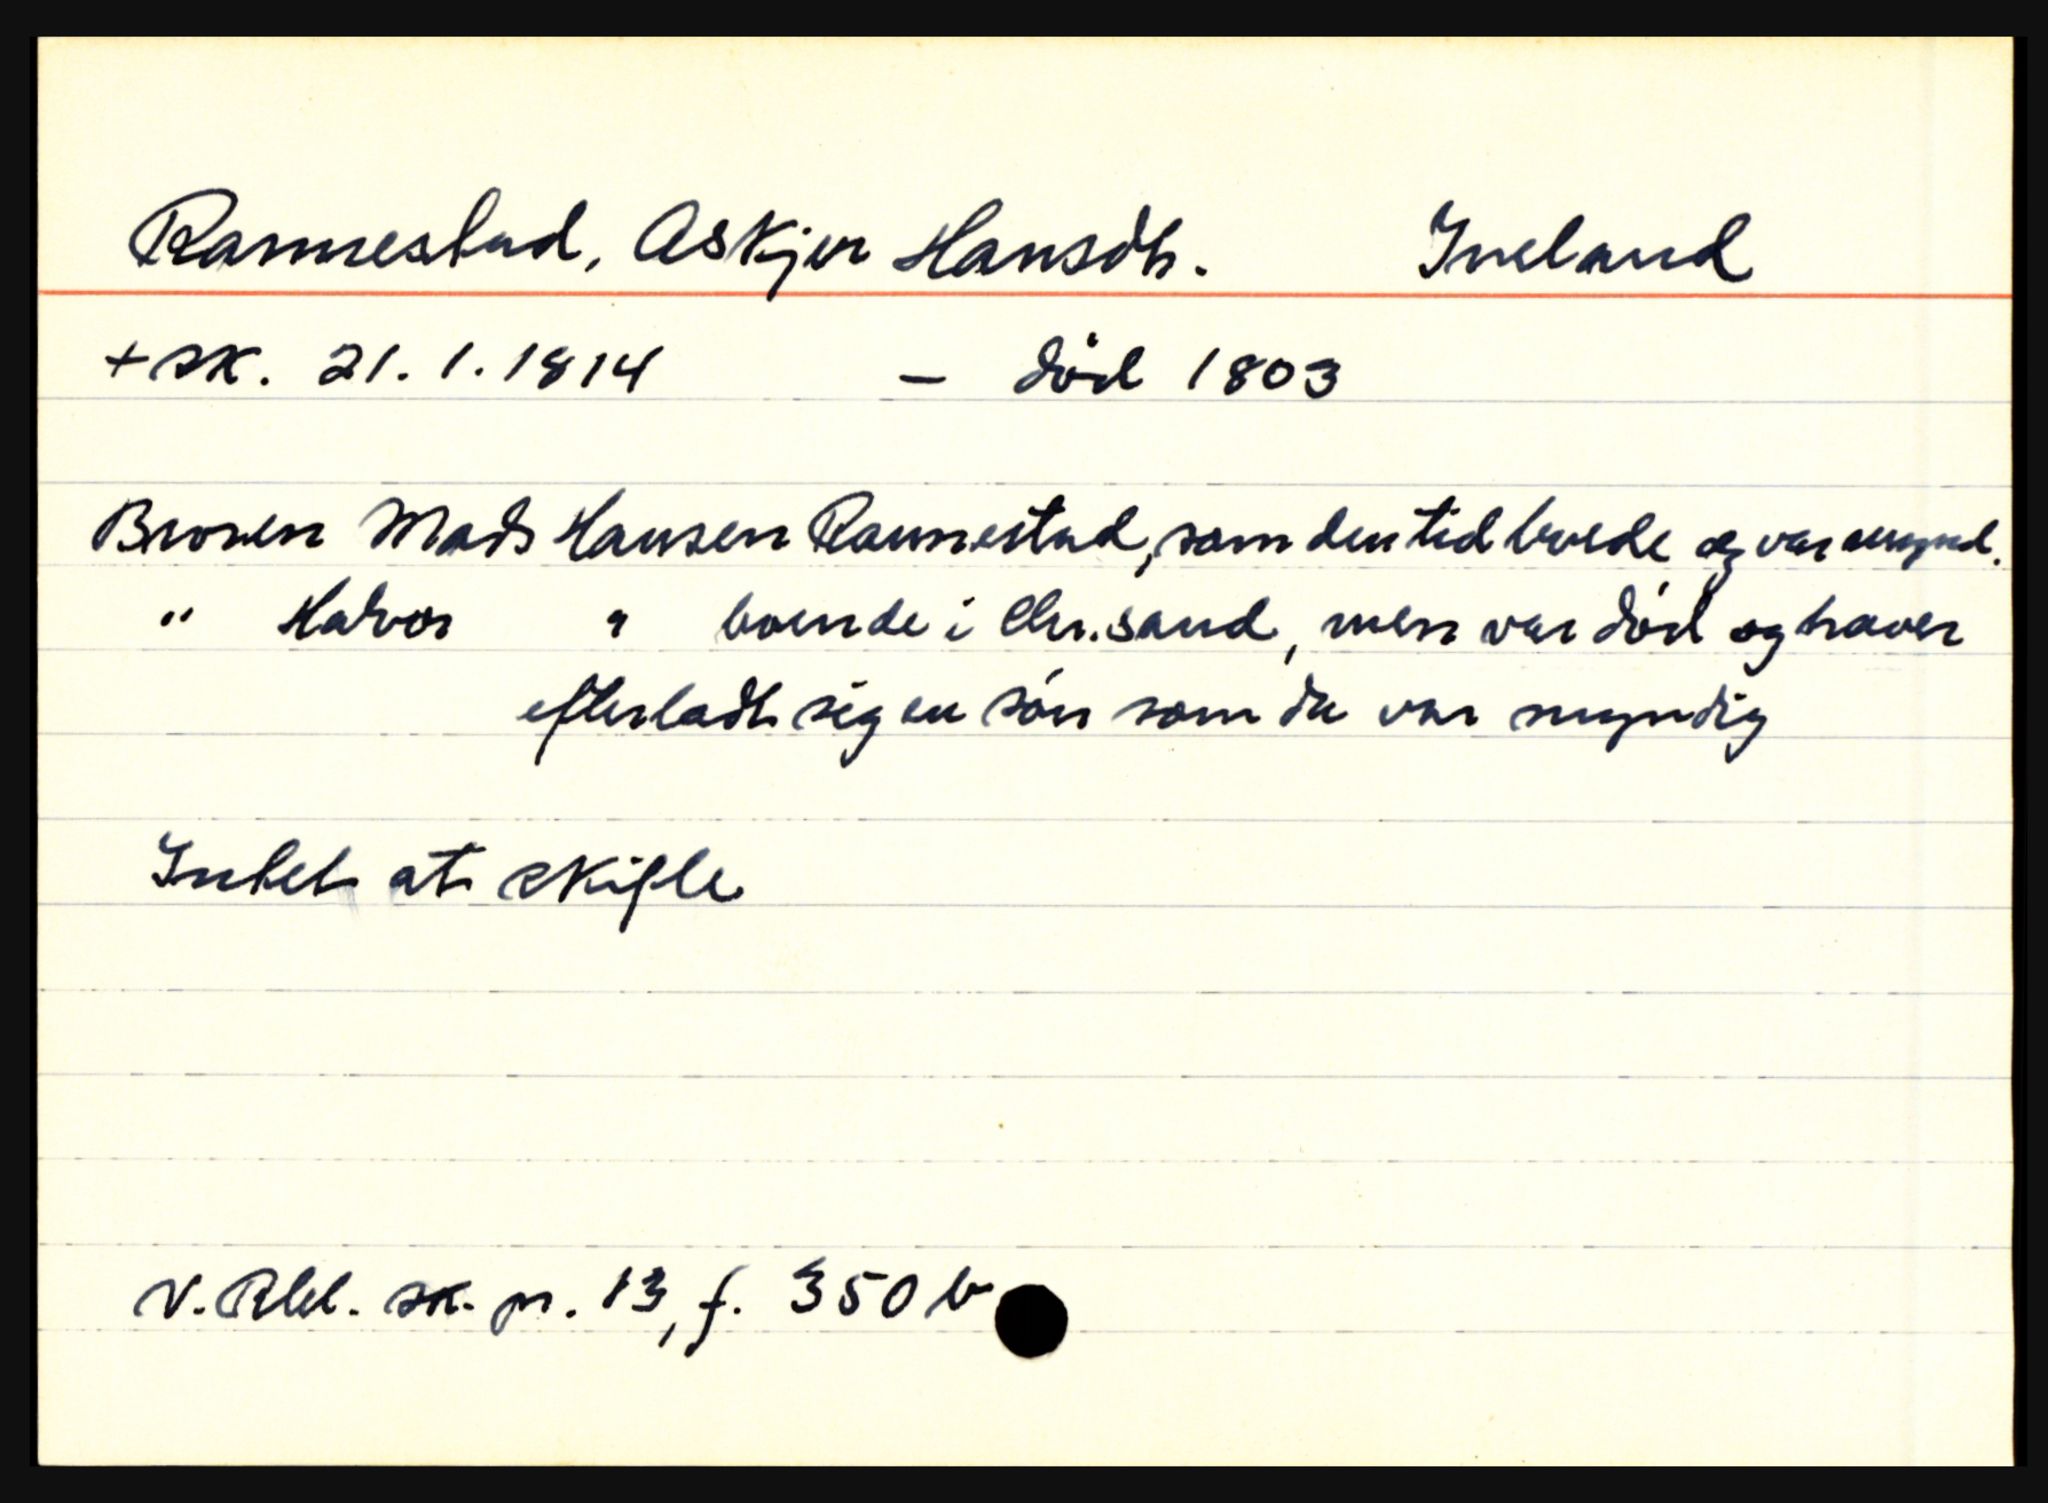 Rannestad, Askjer Hansdt. Iveland
+ sk. 21.1.1814 - død 1803
Broren Mads Hansen Rannestad, som den tid levede og var mynd.
" Halvor " boende i Chr.sand, men var død og haver
efterladt sig en søn som da var myndig
Intet at skifte
V. Rbl. sk. pr. 13, f. 350 b